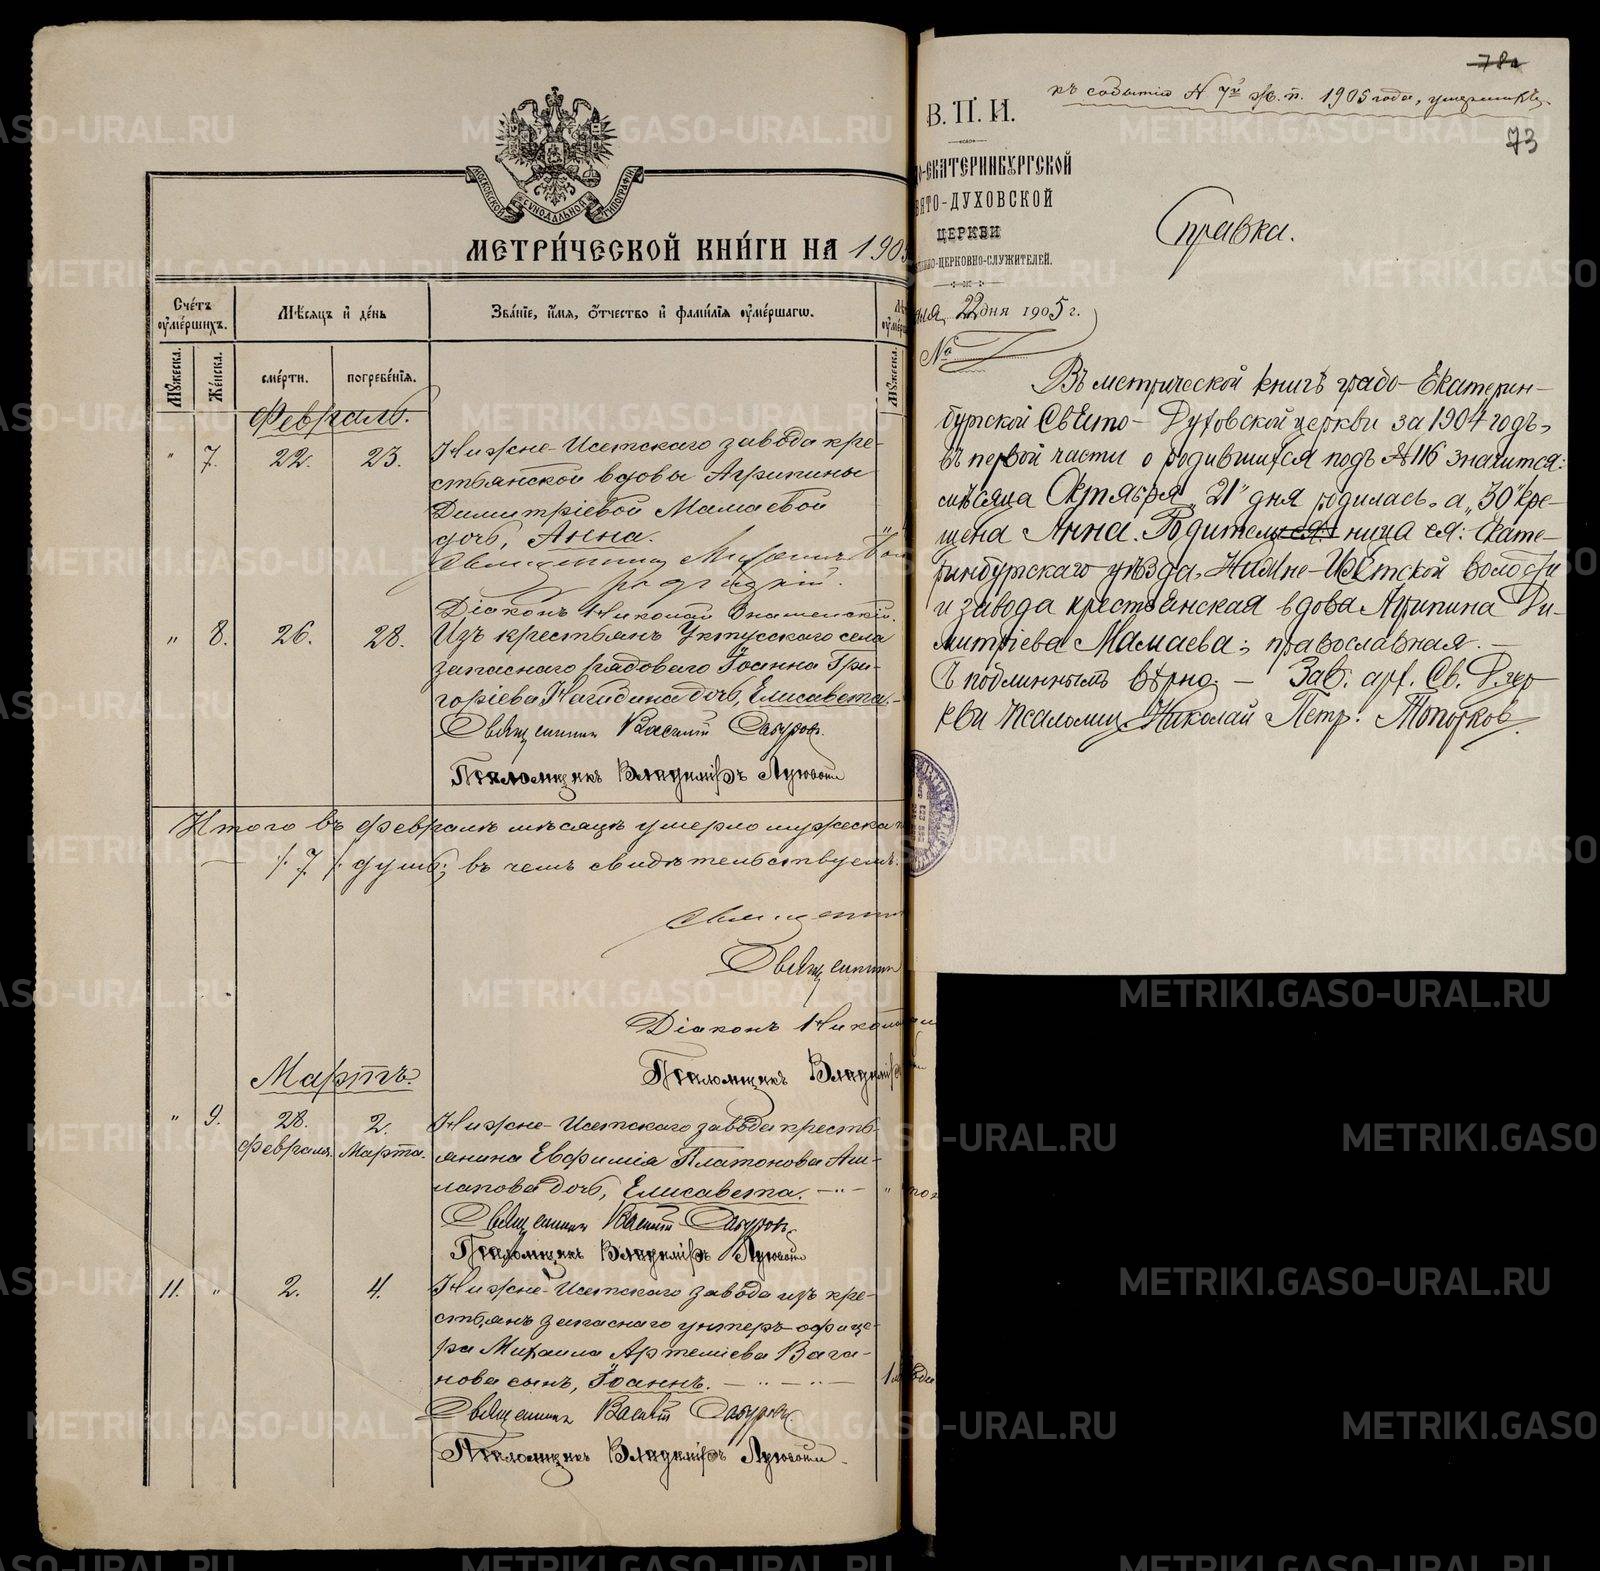 МОСКОВСКОЙ СУНОДАЛЬНОЙ ТИПОГРАФІИ
МЕТРИЧЕСКОЙ КНИГИ НА 1905
Счетъ оумершихъ.
Мѣсяцъ и день
Званіе, имя, отчество и фамилія оумершагω.
Мужеска.
Женска.
смерти.
погребенія.
Мужеска.
Февраль.
" 7. 22. 23. Нижне-Исетскаго завода кре-
стьянской вдовы Агрипины
Димитріевой Мамаевой
дочь, Анна.
Діаконъ Николай Знаменскій.
" 8. 26. 28. Изъ крестьянъ Уктусскаго села
запаснаго рядоваго Іоанна Гри-
горіева Нагидина дочь, Елисавета.
Священникъ Василій
Псаломщикъ Владиміръ
Итого въ февралѣ мѣсяцѣ умерло мужеска
7 душъ; въ чемъ свидѣтельствуемъ:
Священник
Священник
Діаконъ Николай
Псаломщикъ Владимір
Мартъ.
" 9. 28. Февраля. 2. Марта. Нижне-Исетскаго завода кресть-
янина Евфимія Платонова
дочь, Елисавета. "
Священник Василій
Псаломщикъ Владиміръ
11. " 2. 4. Нижне-Исетскаго завода изъ кре-
стьянъ запаснаго унтеръ-офице-
ра Михаила Артеміева Вага-
нова сынъ, Іоаннъ.
Священник Василій
Псаломщикъ Владиміръ
78а
къ событію № 7й ж. п. 1905 года, умерших
73
В. П. И.
О-ЕКАТЕРИНБУРГСКОЙ
ЯТО-ДУХОВСКОЙ
ЦЕРКВИ
ЦЕРКОВНО-СЛУЖИТЕЛЕЙ.
22 дня 1905 г.
№
Справка.
Въ метрической книгѣ градо-Екатерин-
бургской Свято-Духовской церкви за 1904 годъ,
въ первой части о родившихся подъ № 116 значится:
мѣсяца Октября „21" дня родилась, а „30" кре-
щена Анна. Родительница ея: Екате-
ринбургскаго уѣзда, Нижне-Исетской волости
и завода крестьянская вдова Агрипина Ди-
митріева Мамаева; православная. —
Съ подлиннымъ вѣрно. — Зав. арх. Св. Д. цер
кви псаломщ. Николай Петр. Топорков
METRIKI.GASO-URAL.RU